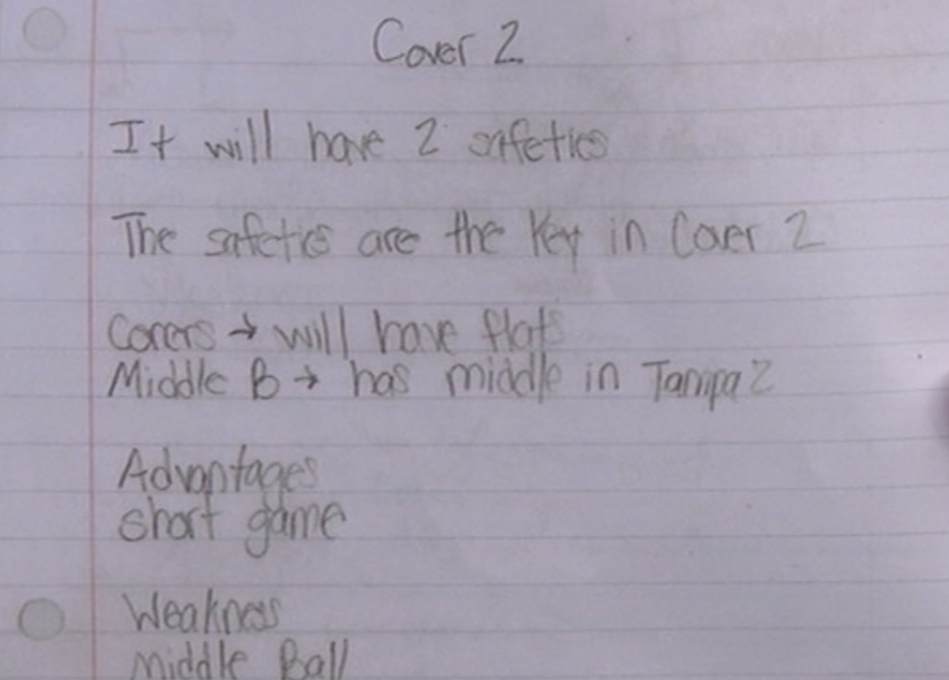 Cover 2
It will have 2 safeties
The safeties are the Key in Cover 2
Corers → will have flats
Middle B → has middle in Tampa 2
Advantages
short game
Weakness
Middle Ball